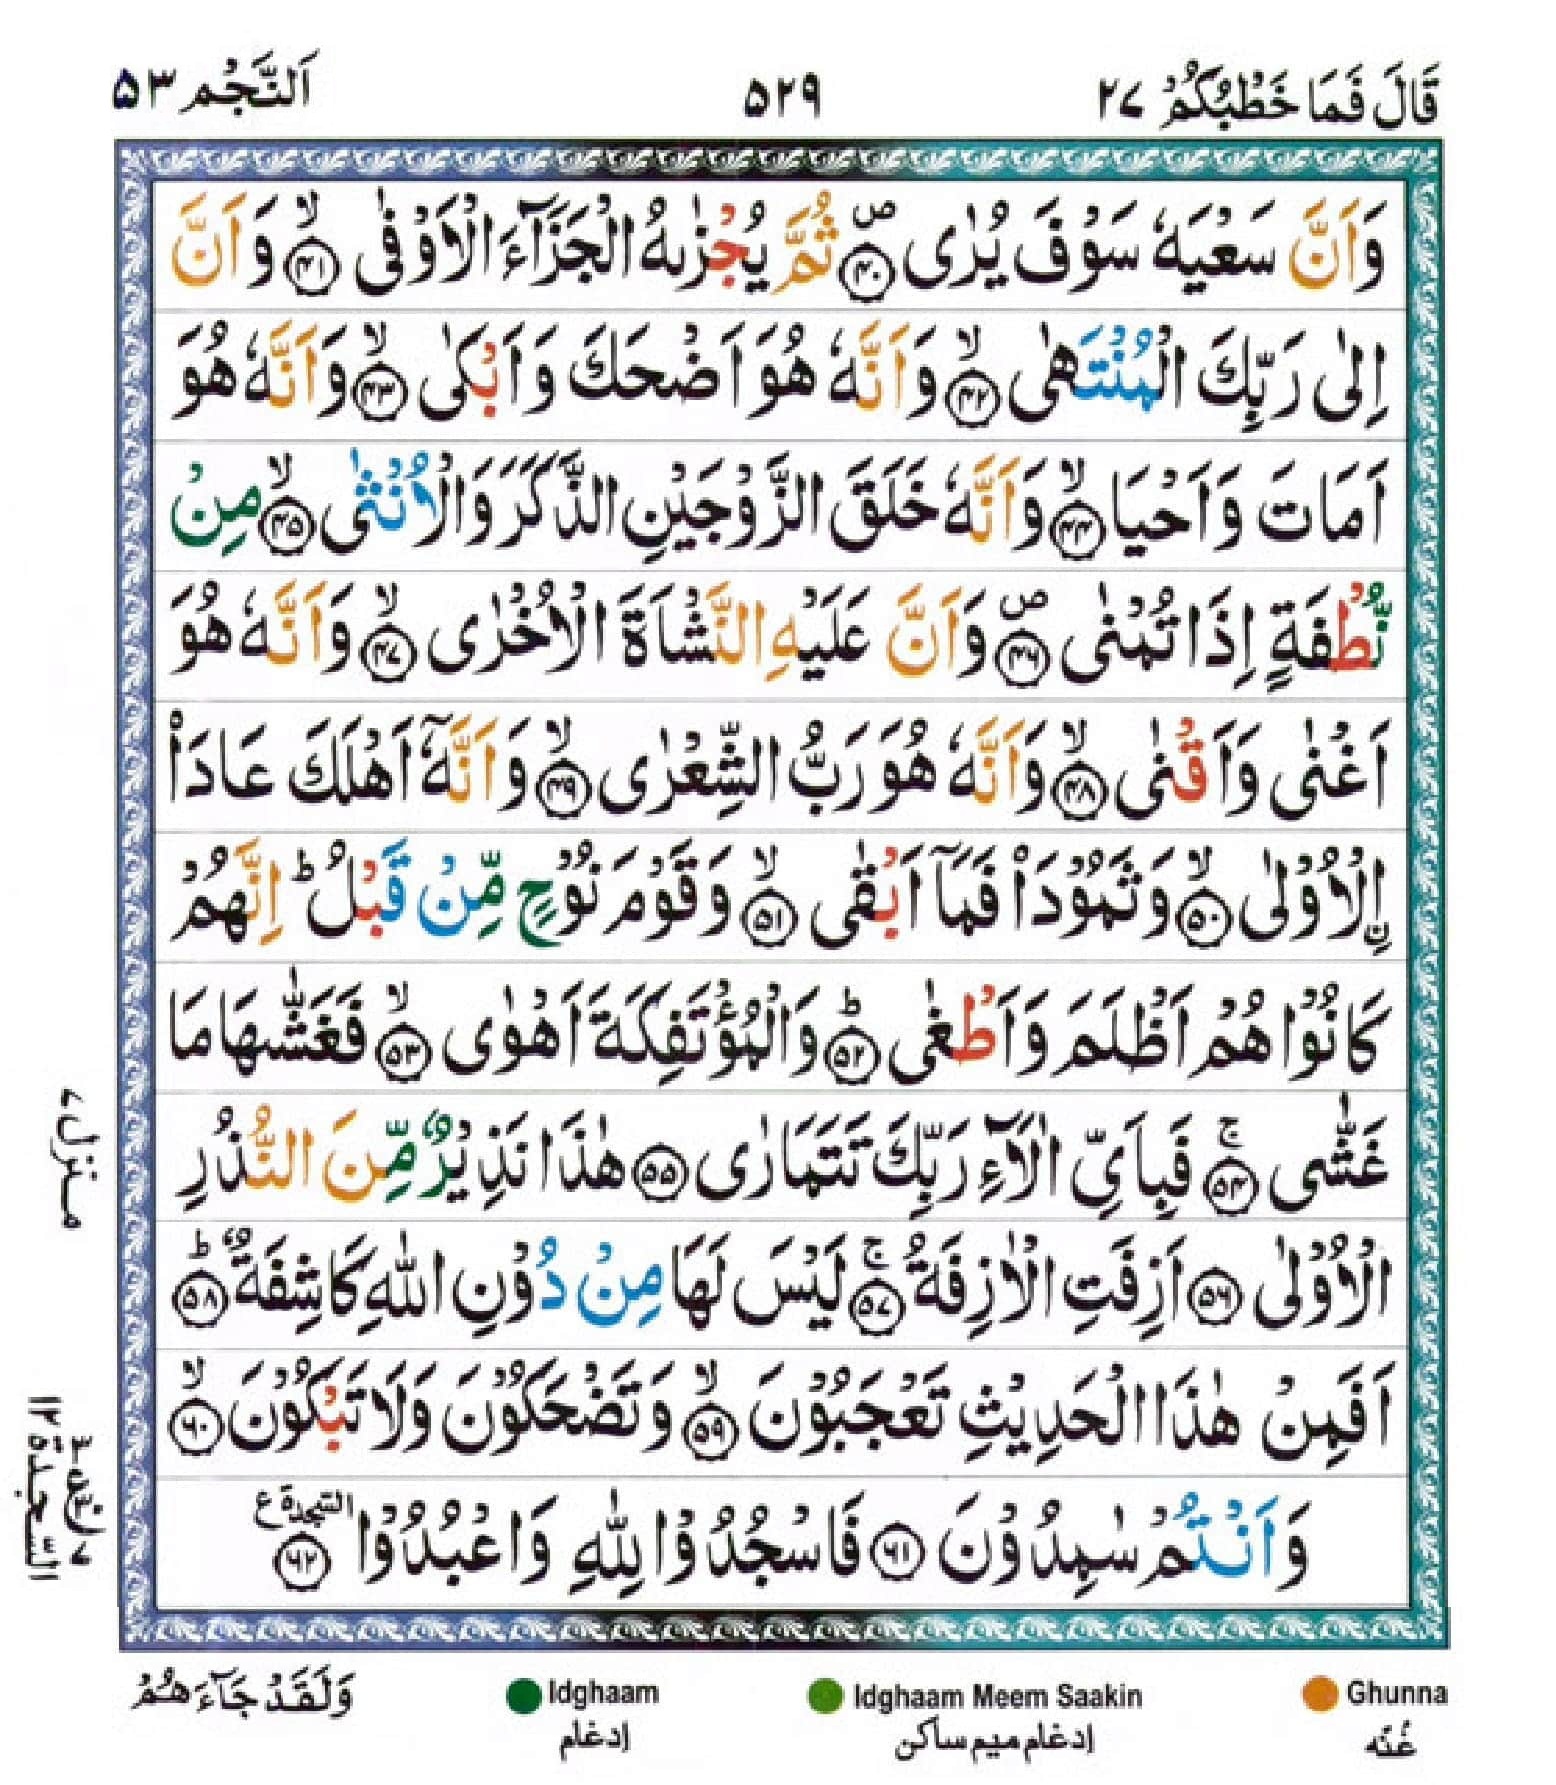 قَالَ فَمَا خَطْبُكُمْ ٢٧
٥٢٩
اَلنَّجْم ٥٣
وَاَنَّ سَعْيَهٗ سَوْفَ يُرٰى ۪ۙ‏﴿۴۰﴾ ثُمَّ يُجْزٰٮهُ الْجَزَآءَ الْاَوْفٰىۙ‏﴿۴۱﴾ وَاَنَّ
اِلٰى رَبِّكَ الْمُنْتَهٰىۙ‏﴿۴۲﴾ وَاَنَّهٗ هُوَ اَضْحَكَ وَاَبْكٰىۙ‏﴿۴۳﴾ وَاَنَّهٗ هُوَ
اَمَاتَ وَاَحْيَاۙ‏﴿۴۴﴾ وَاَنَّهٗ خَلَقَ الزَّوْجَيْنِ الذَّكَرَ وَالْاُنْثٰىۙ‏﴿۴۵﴾ مِنْ
نُّطْفَةٍ اِذَا تُمْنٰى ۪‏﴿۴۶﴾ وَاَنَّ عَلَيْهِ النَّشْاَةَ الْاُخْرٰىۙ‏﴿۴۷﴾ وَاَنَّهٗ هُوَ
اَغْنٰى وَاَقْنٰىۙ‏﴿۴۸﴾ وَاَنَّهٗ هُوَ رَبُّ الشِّعْرٰىۙ‏﴿۴۹﴾ وَاَنَّهٗۤ اَهْلَكَ عَادَاْ
اۨلْاُوْلٰىۙ‏﴿۵۰﴾ وَثَمُوْدَا۟ فَمَاۤ اَبْقٰىۙ‏﴿۵۱﴾ وَقَوْمَ نُوْحٍ مِّنْ قَبْلُؕ اِنَّهُمْ
كَانُوْا هُمْ اَظْلَمَ وَاَطْغٰىؕ‏﴿۵۲﴾ وَالْمُؤْتَفِكَةَ اَهْوٰىۙ‏﴿۵۳﴾ فَغَشّٰٮهَا مَا
غَشّٰىۚ‏﴿۵۴﴾ فَبِاَىِّ اٰلَاۤءِ رَبِّكَ تَتَمَارٰى‏﴿۵۵﴾ هٰذَا نَذِيْرٌ مِّنَ النُّذُرِ
الْاُوْلٰى‏﴿۵۶﴾ اَزِفَتِ الْاٰزِفَةُۚ‏﴿۵۷﴾ لَيْسَ لَهَا مِنْ دُوْنِ اللّٰهِ كَاشِفَةٌؕ‏﴿۵۸﴾
اَفَمِنْ هٰذَا الْحَدِيْثِ تَعْجَبُوْنَۙ‏﴿۵۹﴾ وَتَضْحَكُوْنَ وَلَا تَبْكُوْنَۙ‏﴿۶۰﴾
وَاَنْتُمْ سٰمِدُوْنَ‏﴿۶۱﴾ فَاسْجُدُوْا لِلّٰهِ وَاعْبُدُوْا السجدة ع ‏﴿۶۲﴾
منزل ٧
السجدة ١٢
وَلَقَدْ جَآءَهُمْ
Idghaam
ادغام
Idghaam Meem Saakin
ادغام میم ساکن
Ghunna
غُنّه